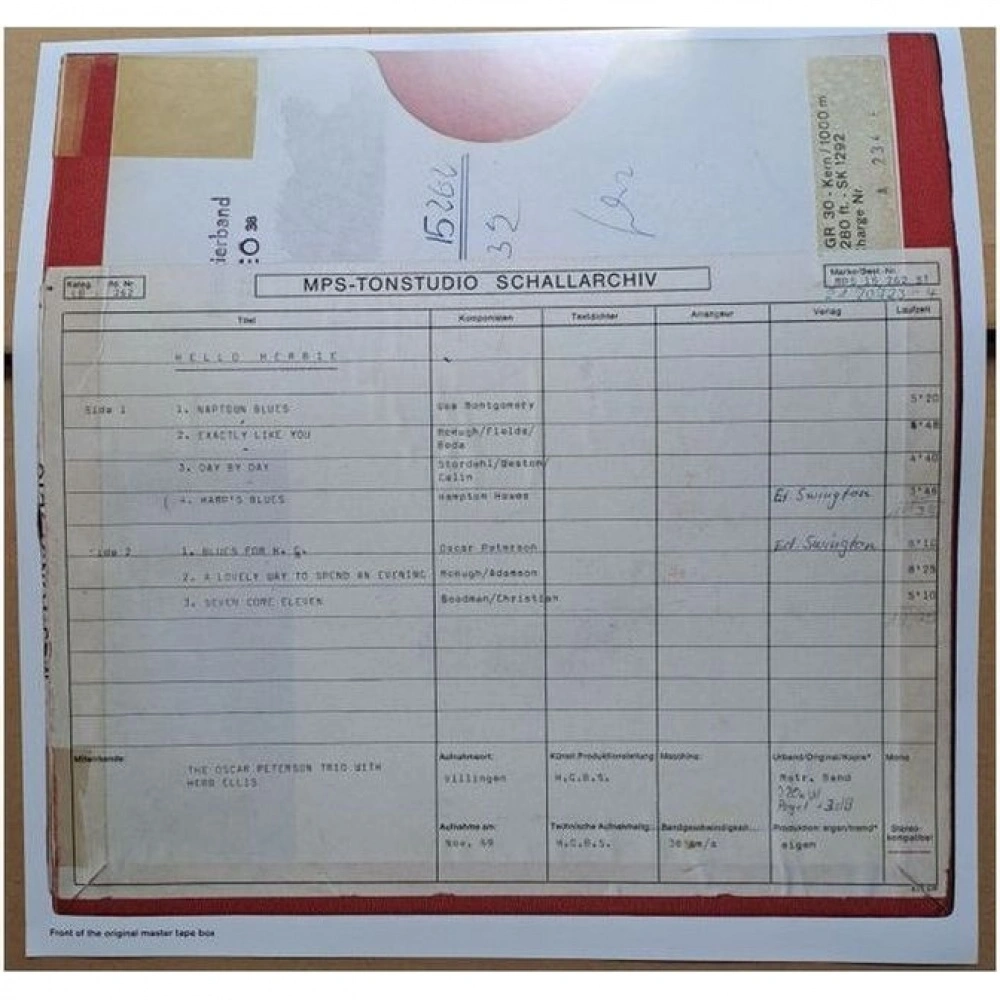 ierband
:O 38
15262
32
GR 30 - Kern / 1000 m
280 ft. - SK 1292
harge Nr.
A 234
Kateg. Nr.
262
MPS-TONSTUDIO SCHALLARCHIV
Marke/Best.-Nr.
MPS 15 262 ST
Titel Komponisten Textdichter Arrangeur Verlag Laufzeit
HELLO HERBIE
Side 1 1. NAPTOWN BLUES Wes Montgomery 5'20
2. EXACTLY LIKE YOU McHugh/Fields/
3. DAY BY DAY Stordahl/Weston/ 4'40
4. HAMP'S BLUES Hampton Hawes Ed. Swington 3'46
2 1. BLUES FOR H. G. Oscar Peterson Ed. Swington
2. A LOVELY WAY TO SPEND AN EVENING McHugh/Adamson 8'25
3. SEVEN COME ELEVEN Goodman/Christian 5'10
Mitwirkende
THE OSCAR PETERSON TRIO WITH
HERB ELLIS
Aufnahmeort: Künstl. Produktionsleitung Maschine: Urband/Original/Kopie* Mono
Villingen H.G.B.S. Mstr. Band
Pegel +3dB
Aufnahme am: Technische Aufnahmeltg. Bandgeschwindigkeit Produktion: eigen/fremd* Stereo-
kompatibel
Nov. 69 H.G.B.S. 38 cm/s eigen
Front of the original master tape box